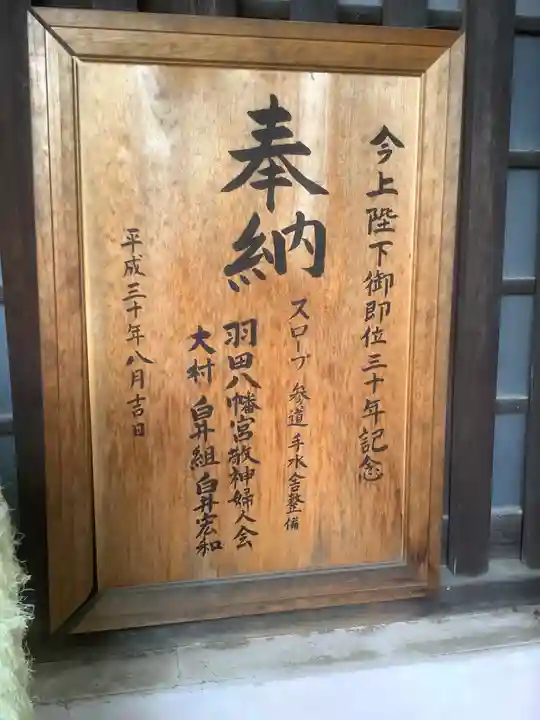 今上陛下御即位三十年記念
奉納
スロープ 参道 手水舎整備
羽田八幡宮敬神婦人会
大村 白井組 白井宏和
平成三十年八月吉日